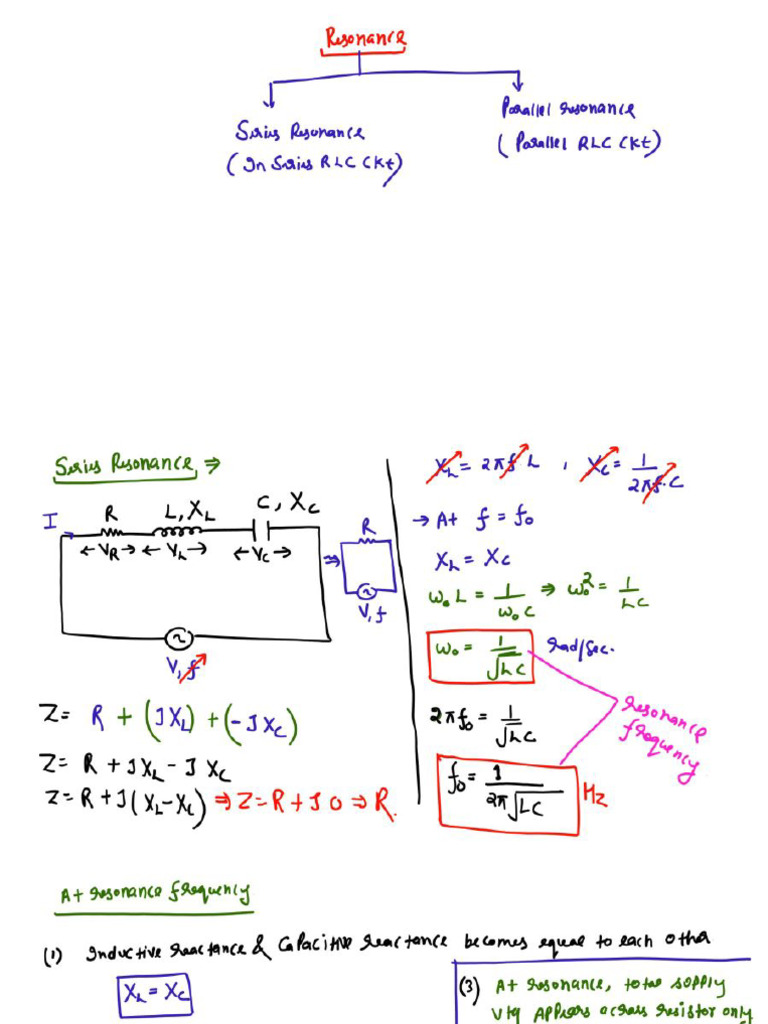 Resonance
Series Resonance
(In Series RLC CKt)
Parallel resonance
(Parallel RLC CKt)
Series Resonance ⇒
I
R
L, X_L
C, X_C
← V_R → ← V_L → ← V_C →
V, f
⇒
R
V, f
Z = R + (JX_L) + (-JX_C)
Z = R + JX_L - JX_C
Z = R + J(X_L - X_C) ⇒ Z = R + J0 ⇒ R.
X_L = 2πf L , X_C = 1/(2πf.C)
→ At f = f₀
X_L = X_C
ω₀L = 1/(ω₀C) ⇒ ω₀² = 1/(LC)
ω₀ = 1/√(LC) rad/sec.
2πf₀ = 1/√(LC)
f₀ = 1/(2π√(LC)) Hz
resonance
frequency
At resonance frequency
(1) Inductive reactance & Capacitive reactance becomes equal to each other
X_L = X_C
(3) At resonance, total supply
Vtg Appears across resistor only